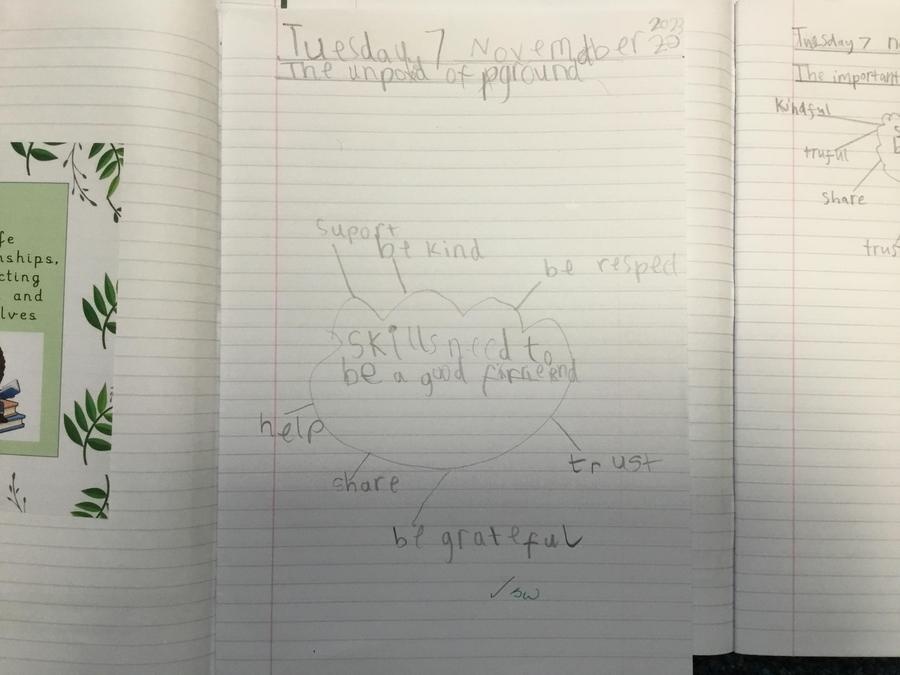 fe
nships,
cting
and
lves
Tuesday 7 Novemdber 2023
20
The unpord of pground
suport
be kind
be respect
skills need to
be a good
help
trust
share
be grateful
✓ sw
Tuesday 7 n
The important
Kindful
truful
share
trus